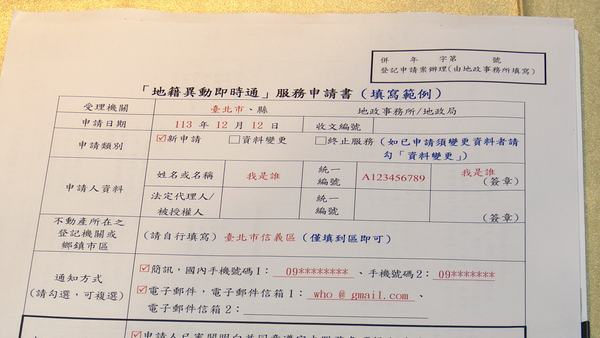 併　年　字第　號
登記申請案辦理(由地政事務所填寫)
「地籍異動即時通」服務申請書（填寫範例）
受理機關　臺北市、縣　地政事務所/地政局
申請日期　113 年 12 月 12 日　收文編號
申請類別　☑新申請　☐資料變更　☐終止服務（如已申請須變更資料者請勾「資料變更」）
申請人資料　姓名或名稱　我是誰　統一編號　A123456789　我是誰（簽章）
法定代理人/被授權人　統一編號　（簽章）
不動產所在之登記機關或鄉鎮市區　(請自行填寫) 臺北市信義區（僅填到區即可）
通知方式（請勾選，可複選）　☑簡訊，國內手機號碼1：09********、手機號碼2：09*******
☑電子郵件，電子郵件信箱1：who@gmail.com、
電子郵件信箱2：